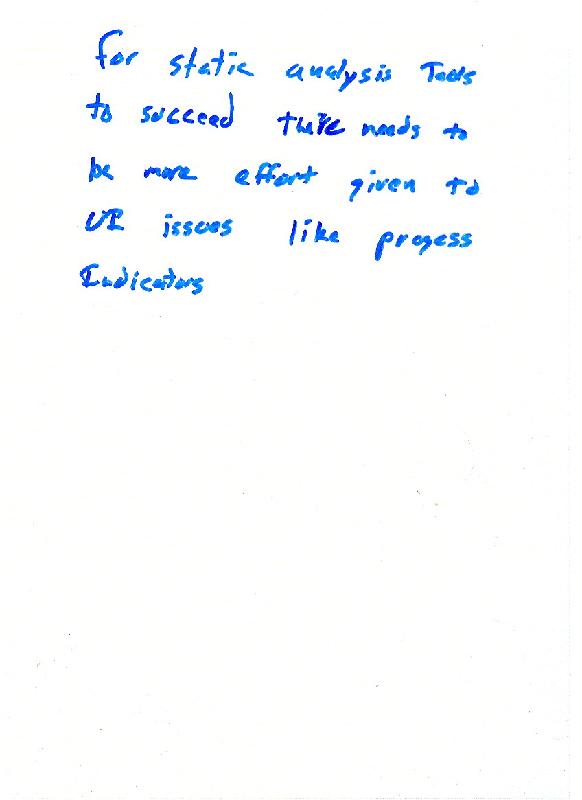 For static analysis Tools
to succeed there needs to
be more effort given to
UI issues like progess
Indicators